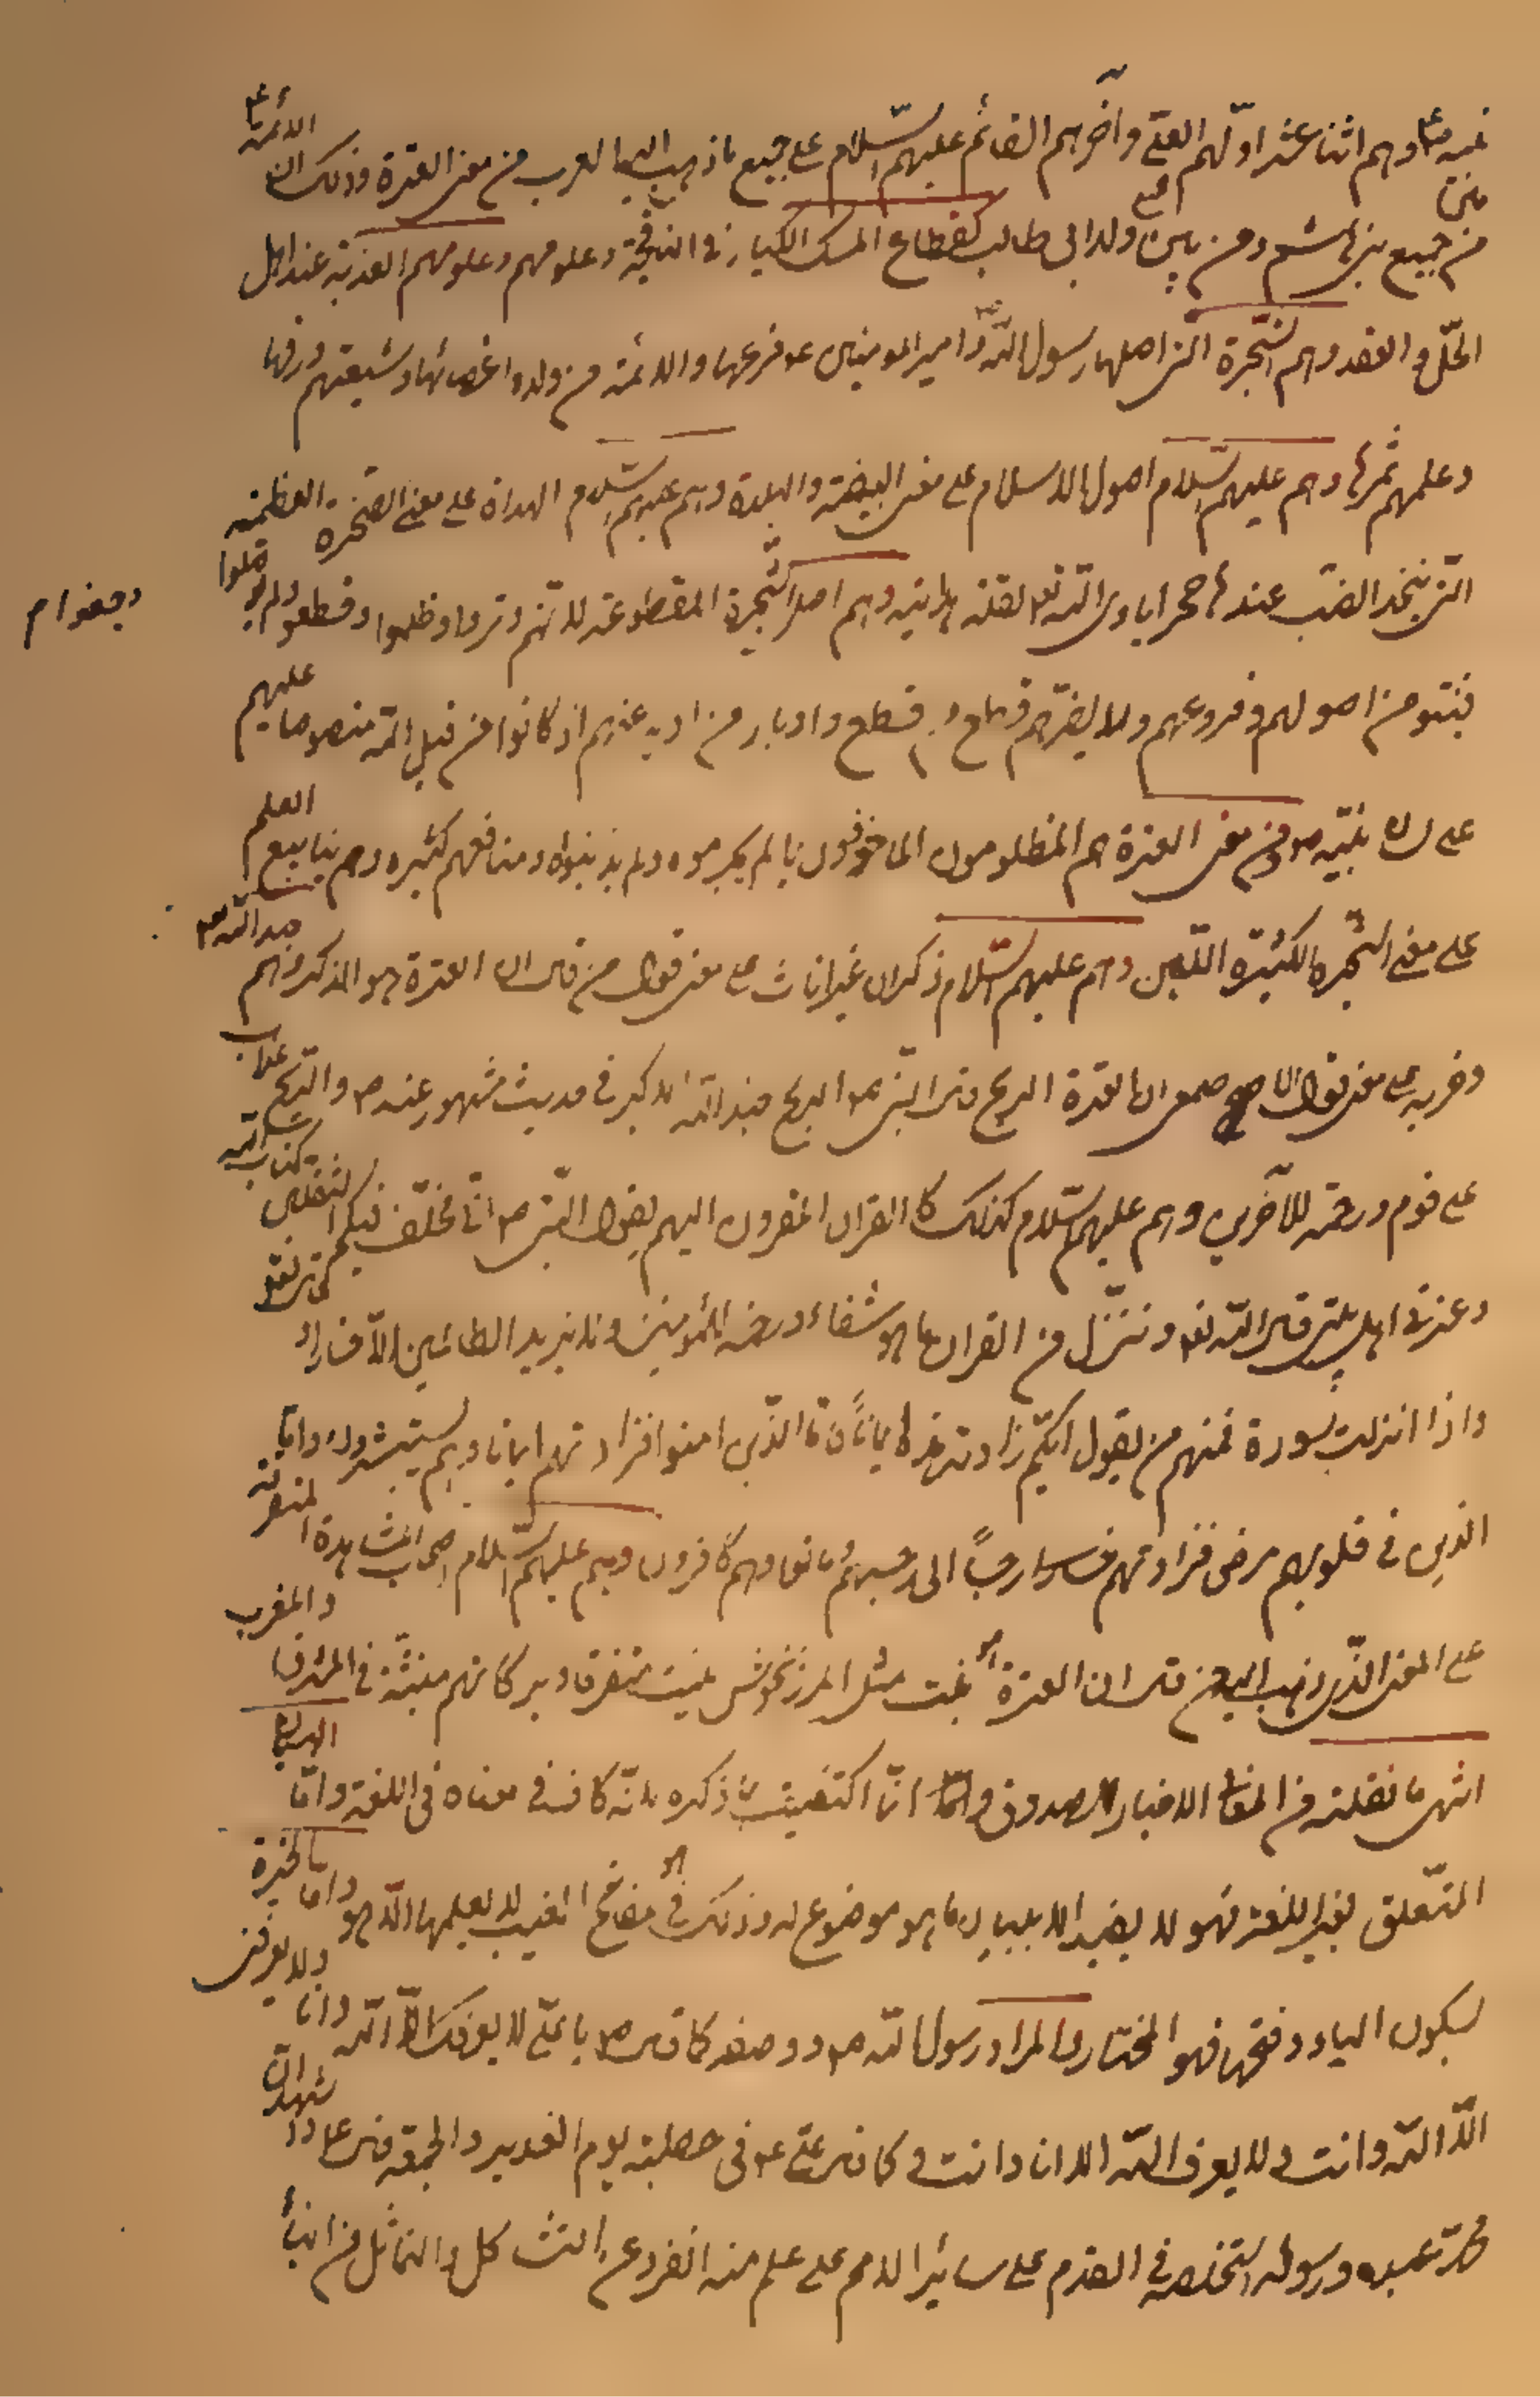 نبيه ص وهم اثنا عشر اولهم العلي وآخرهم القائم عليهم السلام على جميع ما ذهب اليه العرب من معنى العترة وذلك ان الائمة ع
من جميع بني هاشم ومن بين جميع ولد ابي طالب كقطاع المسك الكبار في النافجة وعلومهم وعلومهم العذبة عند اهل
الحل والعقد وهم الشجرة التي اصلها رسول الله ص وامير المومنين ع فرعها والائمة من ولده اغصانها وشيعتهم ورقها
وعلمهم ثمرها وهم عليهم السلام اصول الاسلام على معنى البيضة والبلدة وهم عليهم السلام الهداة على معنى الصخرة العظيمة
التي يتخذ الضب عندها حجرا ياوي اليه لقلة هدايته وهم اصل الشجرة المقطوعة لانهم وتروا وظلموا وقطعوا ولم يوصلوا
وجفوا م
فنبتوا من اصولهم وفروعهم ولا يضرهم قطع من قطع وادبار من ادبر عنهم اذ كانوا من قبل الله منصوصا عليهم
على لسان نبيه ص ومن معنى العترة هم المظلومون الماخوذون بما لم يجرموه ولم يذنبوه ومنافعهم كثيره وهم ينابيع العلم
على معنى الشجرة الكثيرة اللبن وهم عليهم السلام ذكران غير اناث على معنى قول من قال ان العترة هو الذكر وهم جند الله
وحزبه على معنى قول الاصمعي ان العترة الريح قال النبي ص الريح جند الله الاكبر في حديث مشهور عنه ص والريح عذاب
على قوم ورحمة للآخرين وهم عليهم السلام كذلك كالقران المقرون اليهم بقول النبي ص اني مخلف فيكم الثقلين كتاب الله
وعترتي اهل بيتي قال الله تعالى وننزل من القران ما هو شفاء ورحمة للمؤمنين ولا يزيد الظالمين الا خسارا وقال تعالى
واذا انزلت سورة فمنهم من يقول ايكم زادته هذه ايمانا فاما الذين امنوا فزادتهم ايمانا وهم يستبشرون واما
الذين في قلوبهم مرض فزادتهم رجسا الى رجسهم وماتوا وهم كافرون وهم عليهم السلام اصحاب المشاهد المتفرقة
على المعنى الذي ذهب اليه من قال ان العترة هو نبت مثل المرزنجوش ينبت متفرقا وبركاتهم منبثة في المشرق والمغرب
انتهى ما نقلته من معاني الاخبار للصدوق وانما انا اكتفيت بما ذكره لانه كاف في معناه في اللغة واما البيان
المتعلق بغير اللغة فهو لا يفيد الا ببيان ما هو موضوع له وذلك في مفاتح الغيب لا يعلمها الا هو واما الخيرة
بسكون الياء وفتحها فهو المختار والمراد رسول الله ص ووصفه كما قال ص يا علي لا يعرفك الا الله وانا ولا يعرفني
الا الله وانت ولا يعرف الله الا انا وانت وكما قال علي ع في خطبته يوم الغدير والجمعة قال ع واشهد ان
محمدا عبده ورسوله استخلصه في القدم على سائر الامم على علم منه انفرد عن التشاكل والتماثل من ابناء